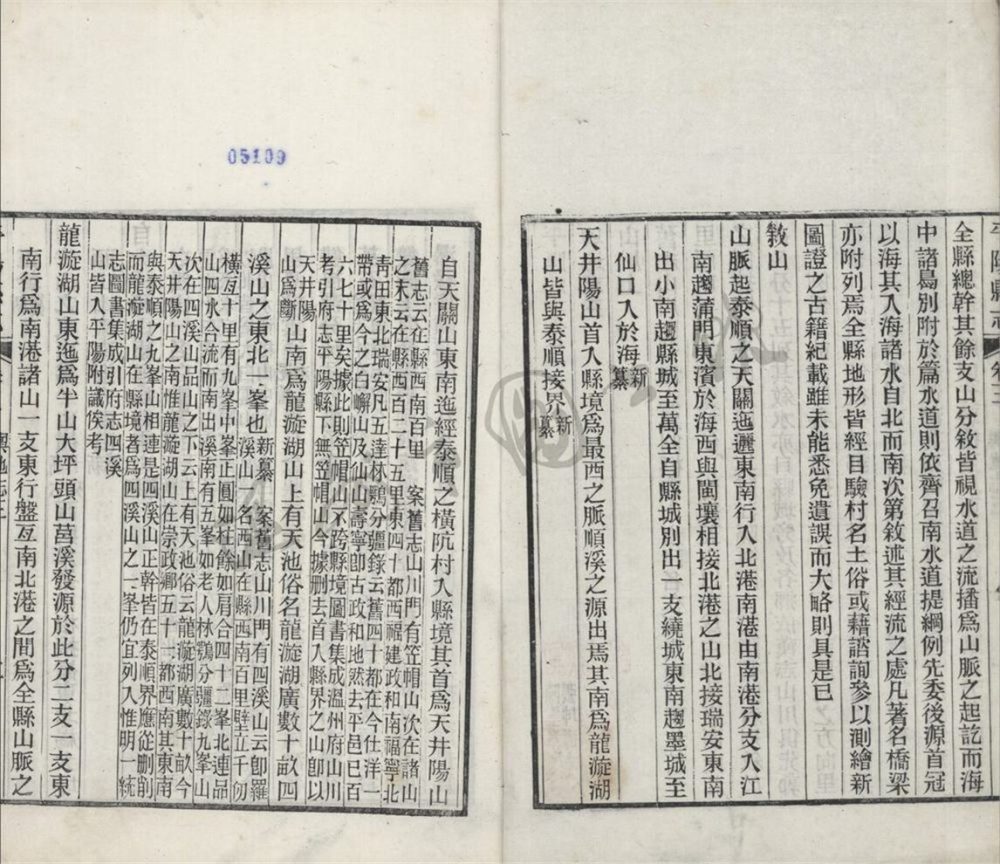 全縣總幹其餘支山分敘皆視水道之流播爲山脈之起訖而海
中諸島別附於篇水道則依齊召南水道提綱例先委後源首冠
以海其入海諸水自北而南次第敘述其經流之處凡著名橋梁
亦附列焉全縣地形皆經目驗村名土俗或藉諮詢參以測繪新
圖證之古籍紀載雖未能悉免遺誤而大略則具是已
敘山
山脈起泰順之天關迤邐東南行入北港南港由南港分支入江
南趨蒲門東濱於海西與閩壤相接北港之山北接瑞安東南
出小南趨縣城至萬全自縣城別出一支繞城東南趨墨城至
仙口入於海新纂
天井陽山首入縣境爲最西之脈順溪之源出焉其南爲龍漩湖
山皆與泰順接界新纂
自天關山東南迤經泰順之橫阬村入縣境其首爲天井陽山
舊志云在縣西南百里　案舊志山川門有笠帽山次在諸山
之末云在縣西百二十五里東四十都西福建政和南福寧北
青田東北瑞安凡五達林鶚分疆錄云舊四十都在今仕洋一
帶或爲今之白㵎山及仙山壽寧卽古政和地然去平邑已百
六七十里矣據此則笠帽山不跨縣境圖書集成溫州府山川
考引府志平陽縣下無笠帽山今據刪去首入縣界之山卽以
天井陽
山爲斷山南爲龍漩湖山上有天池俗名龍漩湖廣數十畝四
溪山之東北一峯也新纂　案舊志山川門有四溪山云卽羅
溪山一名西山在縣西南百里壁立千仞
橫亙十里有九峯中峯正圓如柱餘如肩合四十二峯北連品
山四水合流而南出溪南有五峯如老人林鶚分疆錄九峯山
次在四溪品山之下云上有天池俗云龍漩湖廣數十畝今
天井陽山之南惟龍漩湖山在崇政鄉五十三都西南其東南
與泰順之九峯山相連是四溪山正幹皆在泰順界應從刪削
而龍漩湖山在縣境者爲四溪山之一峯仍宜列入惟明一統
志圖書集成引府志四溪
山皆入平陽附識俟考
龍漩湖山東迤爲半山大坪頭山莒溪發源於此分二支一支東
南行爲南港諸山一支東行盤亙南北港之間爲全縣山脈之
05109